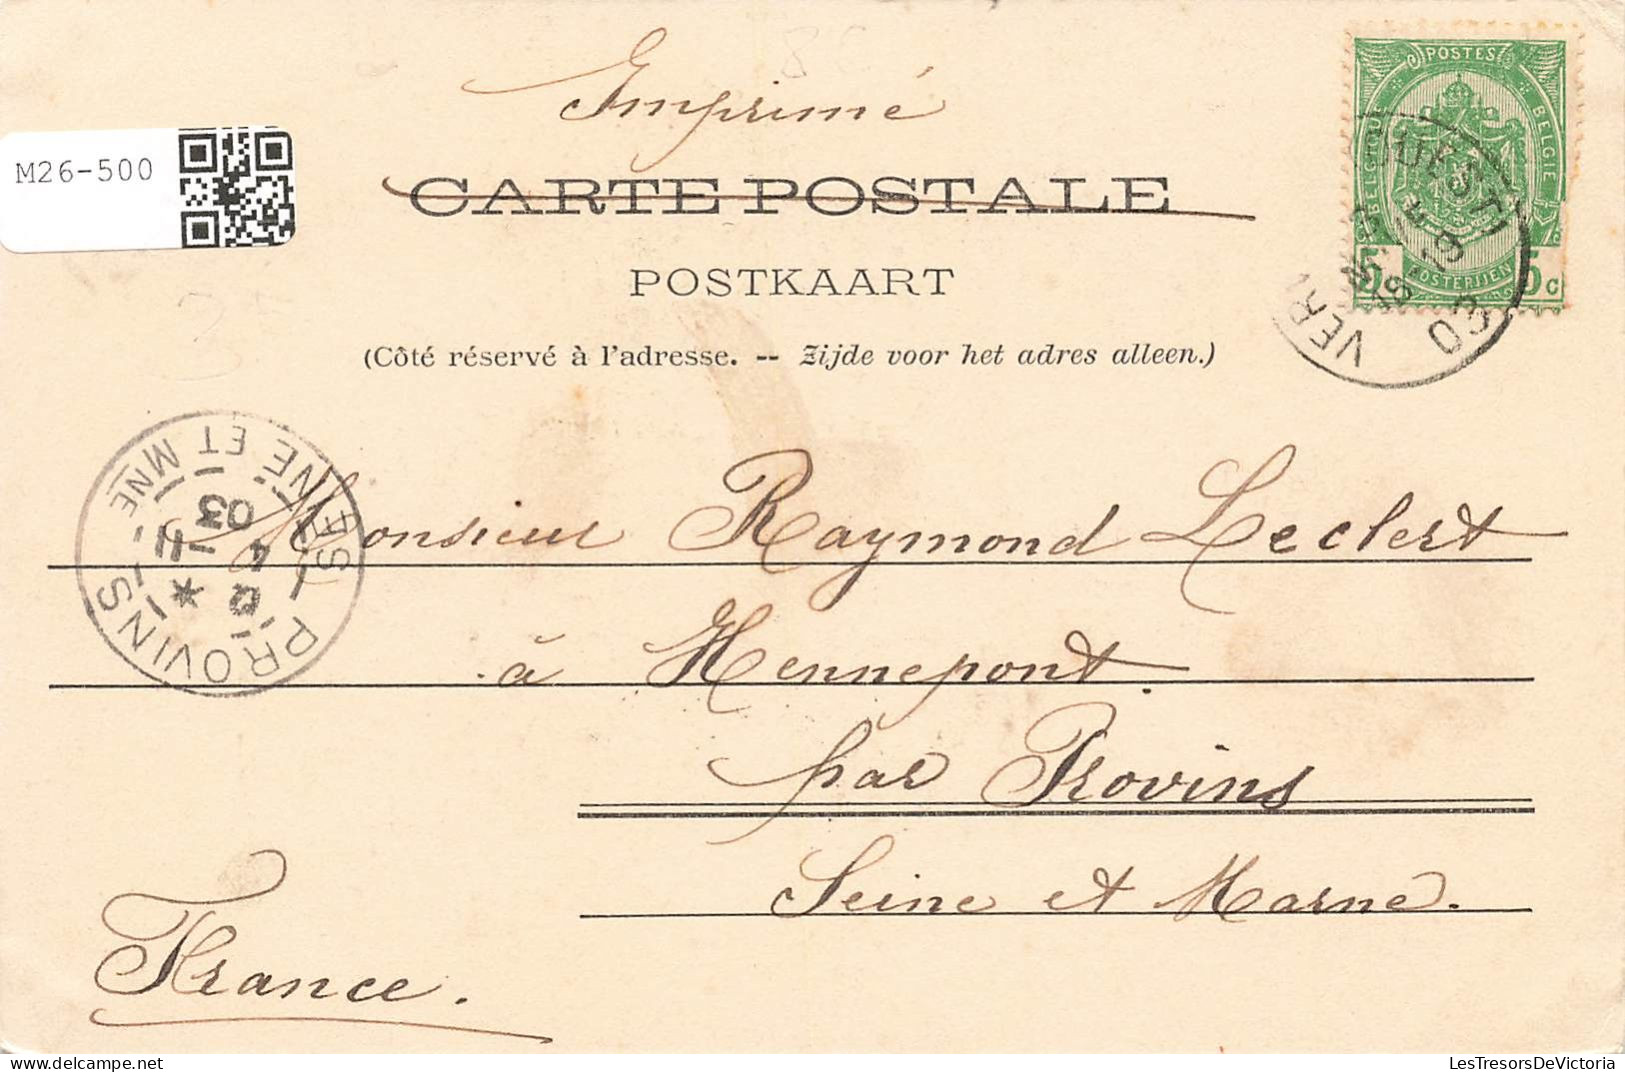 Imprimé
M26-500
CARTE POSTALE
POSTKAART
(Côté réservé à l'adresse. -- Zijde voor het adres alleen.)
POSTES
BELGIE
POSTERIJEN
5 5 c
VER OUEST
18-19
03
PROVINS
SEINE ET MNE
4
03
Monsieur Raymond Leclert
à Hennepont
par Provins
Seine et Marne.
France.
LesTresorsDeVictoria